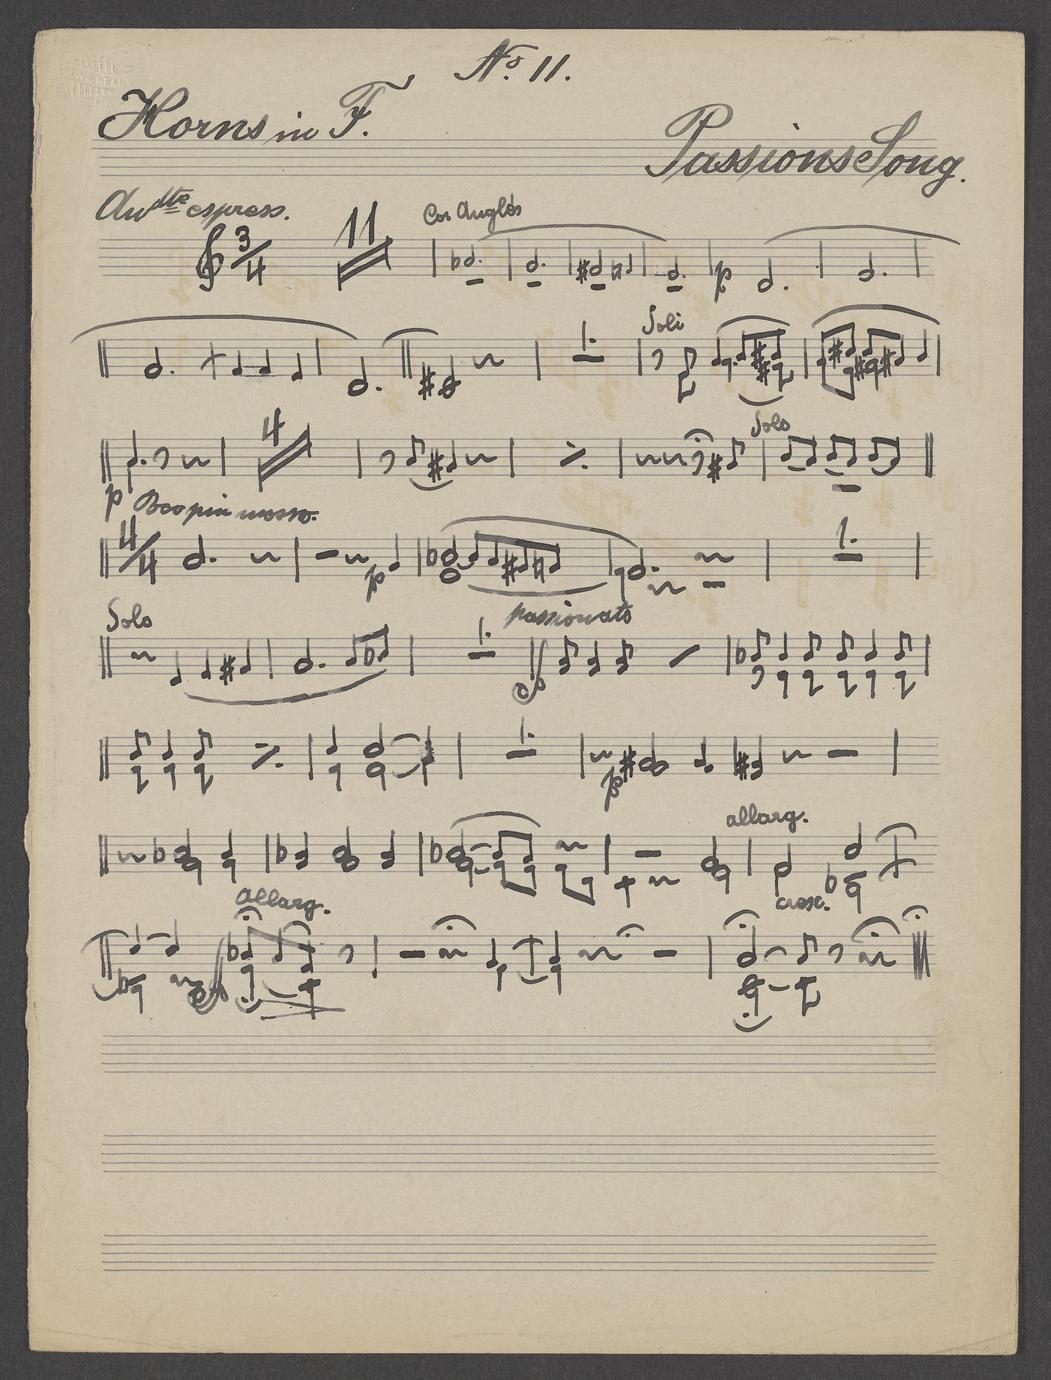 No 11.
Horns in F.
Passions Song.
Andte espress.
Cor Anglés
3/4
11
p
1.
Soli
4
Solo
p Poco piu mosso.
4/4
p
1.
Solo
1.
passionato
1.
p
allarg.
cresc.
allarg.